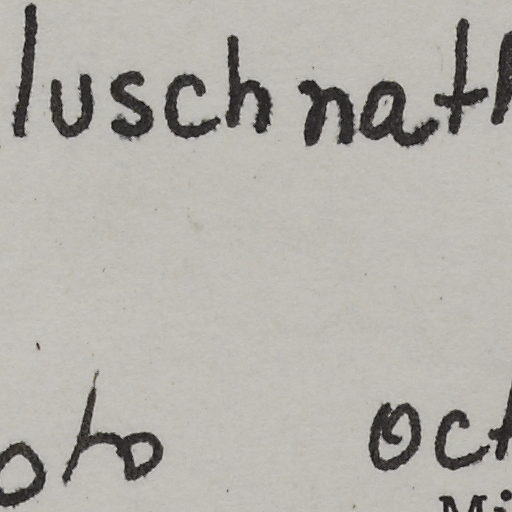 luschnath
oto oct
Mi